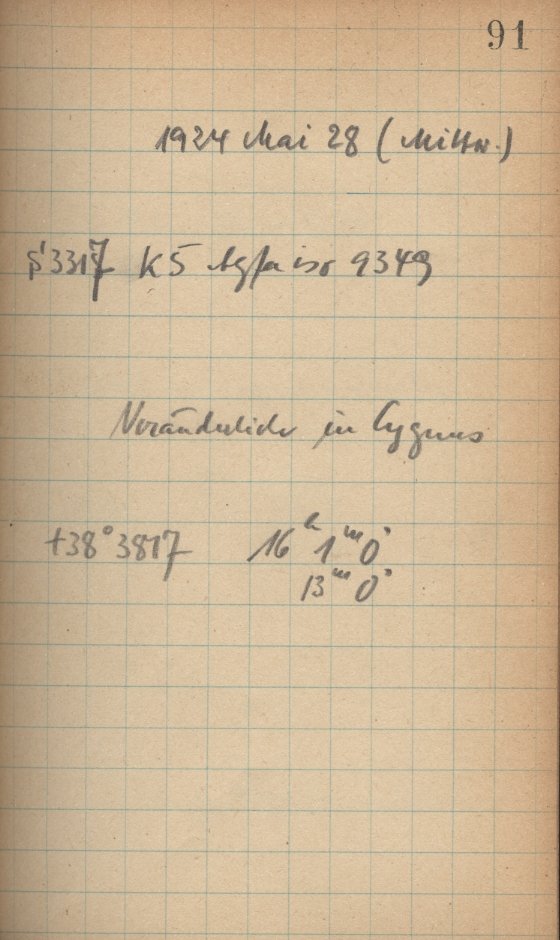 91
1924 Mai 28 (Mittw.)
3317 K5 Agfa iso 9349
Veränderliche in Cygnus
+38° 3817 16h 1m 0s
13m 0s